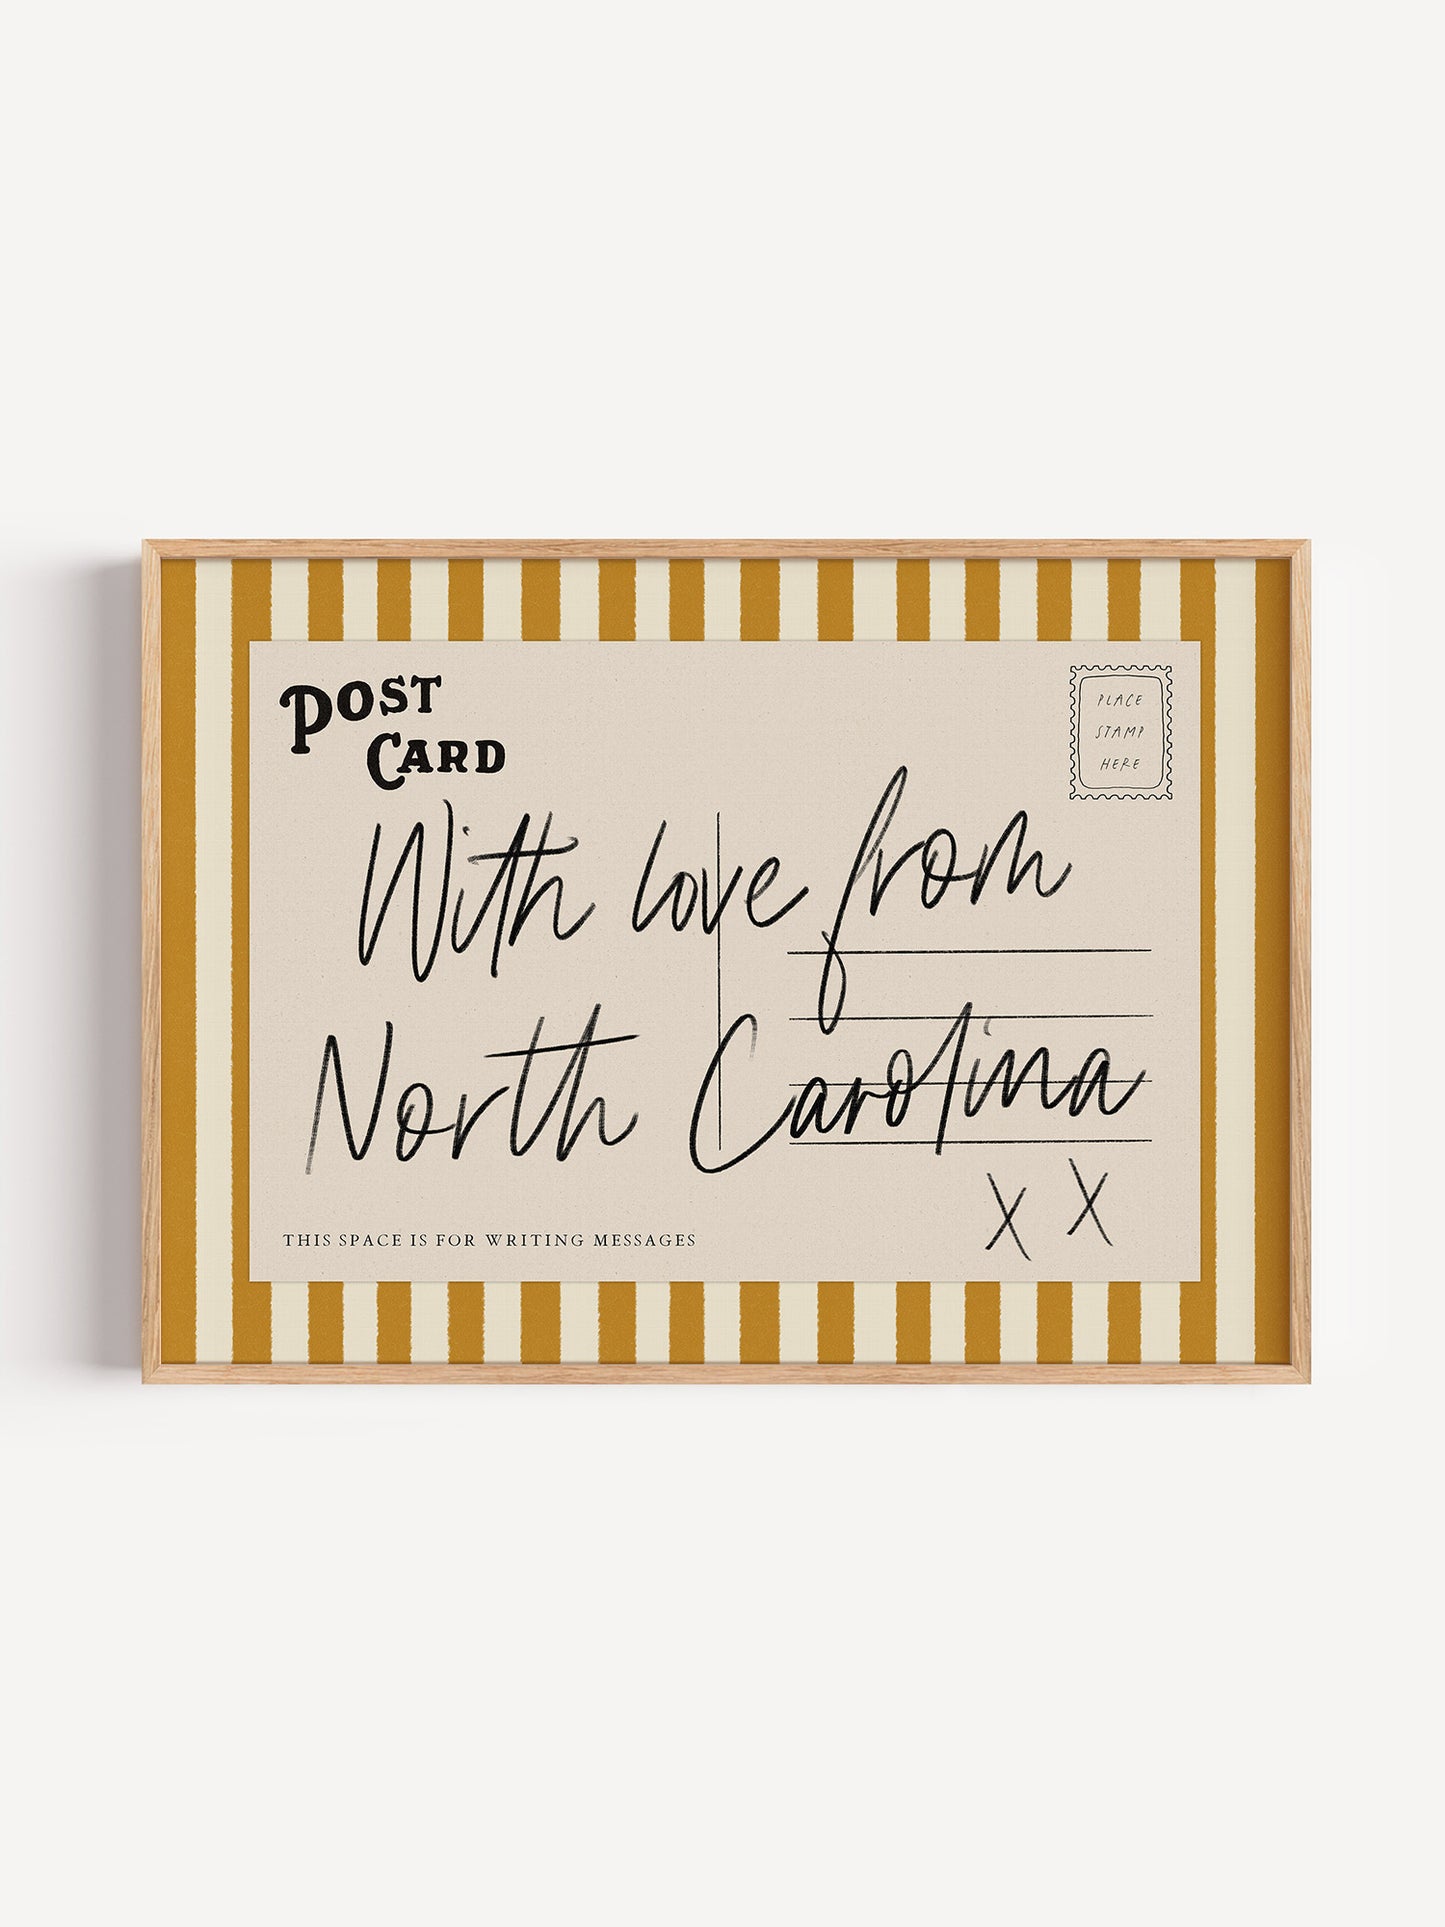 POST
CARD
PLACE
STAMP
HERE
With love from
North Carolina
X X
THIS SPACE IS FOR WRITING MESSAGES